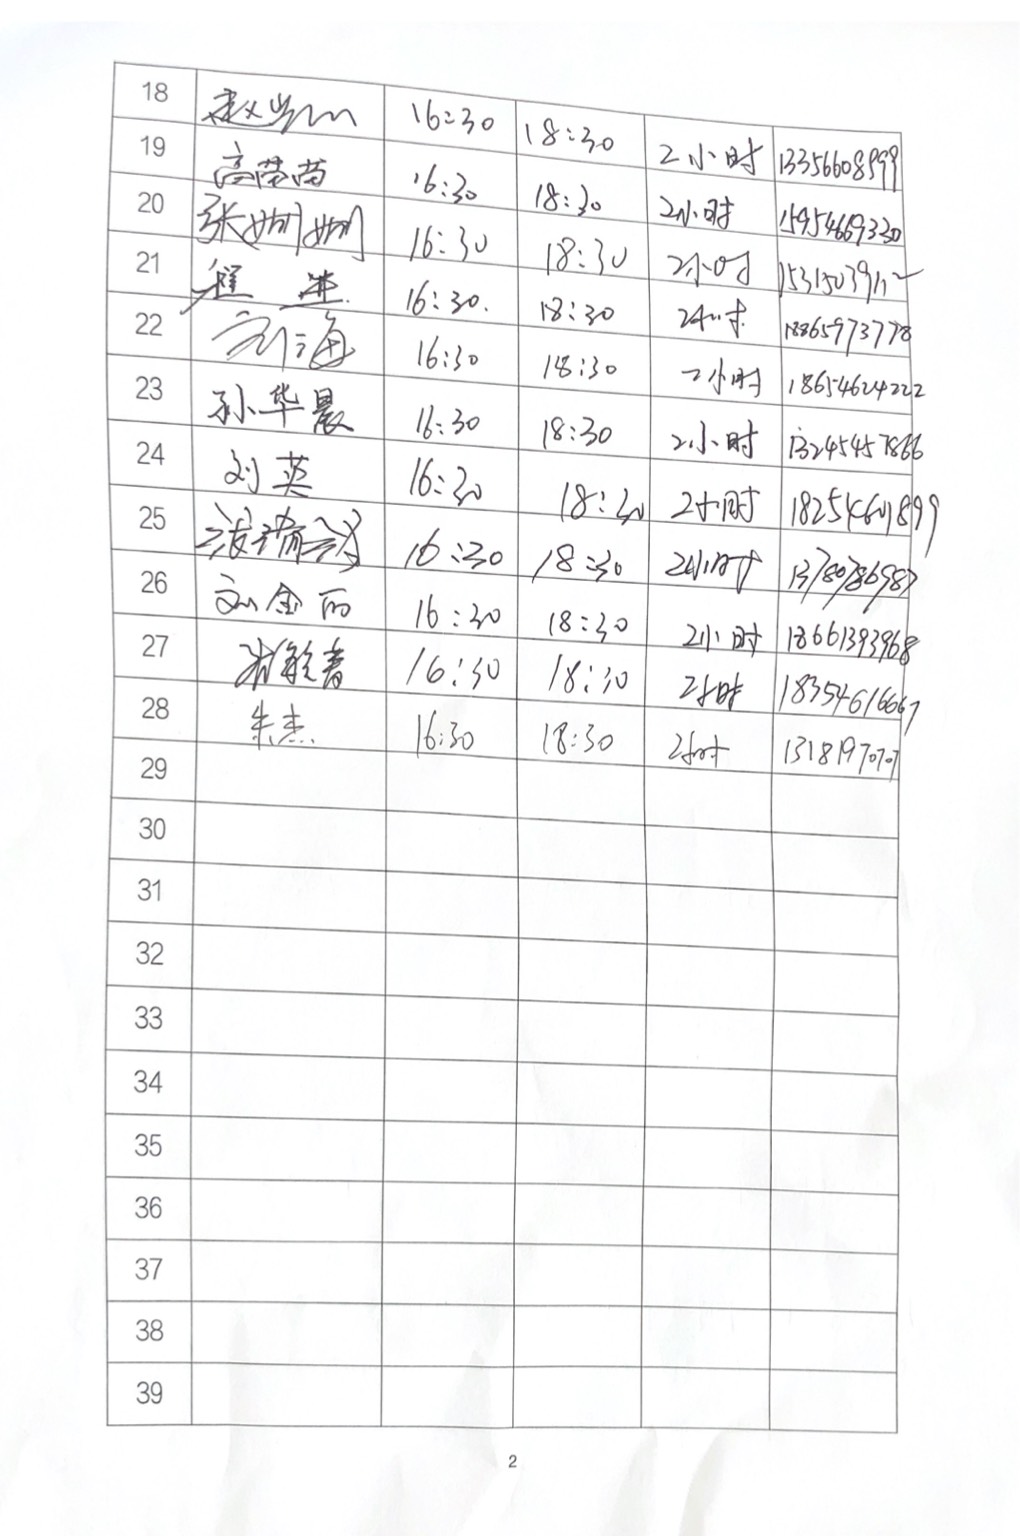 18 16:30 18:30 2小时 13356608999
19 高苗苗 16:30 18:30 2小时 15954669330
20 张姗姗 16:30 18:30 2小时
21 程进 16:30. 18:30 18865973778
22 刘海 16:30 18:30 2小时 18654624222
23 孙华晨 16:30 18:30 2小时 13245457866
24 刘英 16:30 18:30 2小时 18254601899
25 16:30 18:30 2小时 13780786987
26 刘金丽 16:30 18:30 2小时 18661393968
27 16:30 18:30 2小时 18354616667
28 朱杰 16:30 18:30 2小时 13181970707
29
30
31
32
33
34
35
36
37
38
39
2